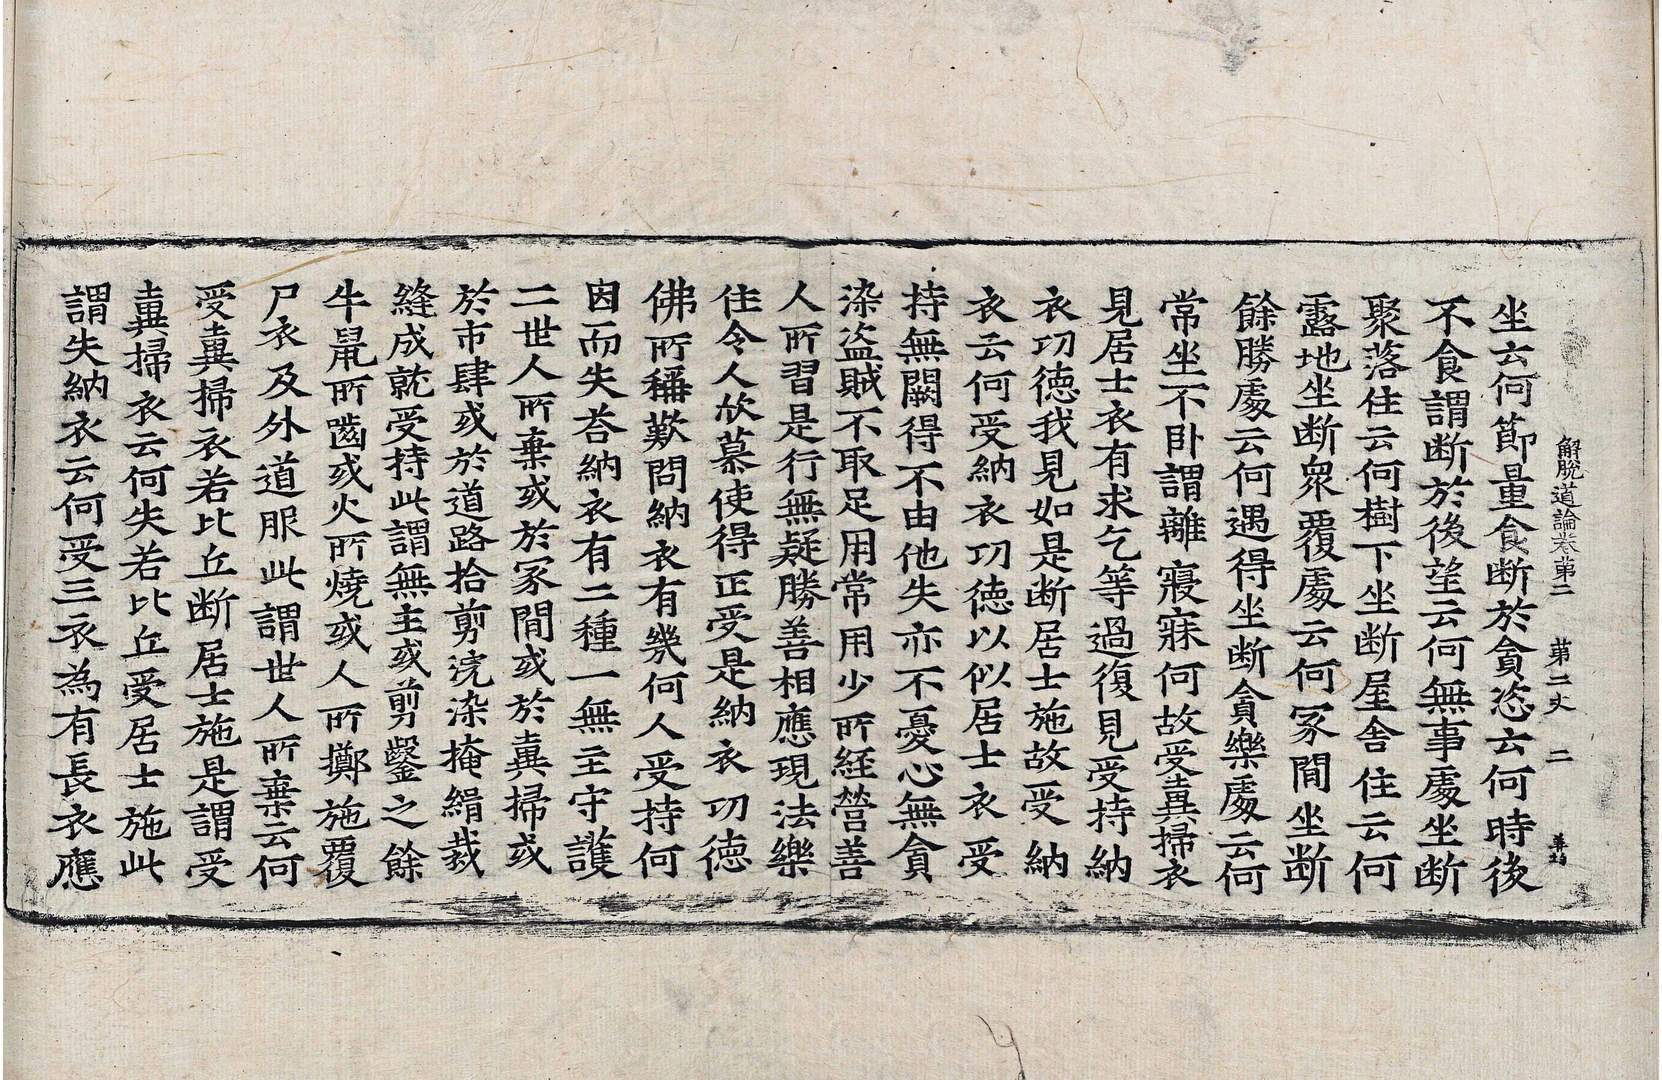 解脫道論卷第二 第二丈 二
坐云何節量食断於貪恣云何時後
不食謂断於後望云何無事處坐断
聚落住云何樹下坐断屋舍住云何
露地坐断衆覆處云何冢間坐断
餘勝處云何遇得坐断貪樂處云何
常坐不卧謂離寢寐何故受糞掃衣
見居士衣有求乞等過復見受持納
衣功德我見如是断居士施故受納
衣云何受納衣功德以似居士衣受
持無闕得不由他失亦不憂心無貪
染盜賊不取足用常用少所経營善
人所習是行無疑勝善相應現法樂
住令人欣慕使得正受是納衣功德
佛所稱歎問納衣有幾何人受持何
因而失荅納衣有二種一無主守護
二世人所棄或於冢間或於糞掃或
於市肆或於道路拾剪浣染掩緝裁
縫成就受持此謂無主或剪鑿之餘
牛鼠所齧或火所燒或人所擲施覆
尸衣及外道服此謂世人所棄云何
受糞掃衣若比丘断居士施是謂受
糞掃衣云何失若比丘受居士施此
謂失納衣云何受三衣為有長衣應